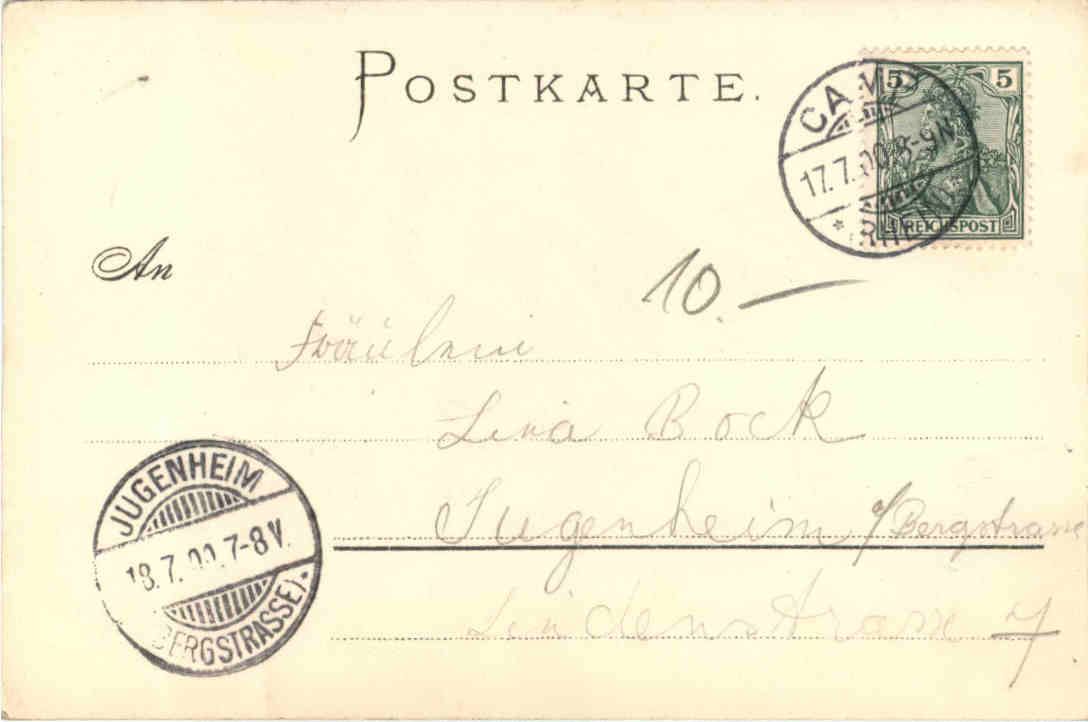 POSTKARTE.
5 5
CAMP
17.7.00.8-9N
* (RHEIN) *
REICHSPOST
An
10.—
Fräulein
Lina Bock
Jugenheim a/Bergstrasse
Lindenstrasse 7
JUGENHEIM
18.7.00.7-8V.
(BERGSTRASSE).